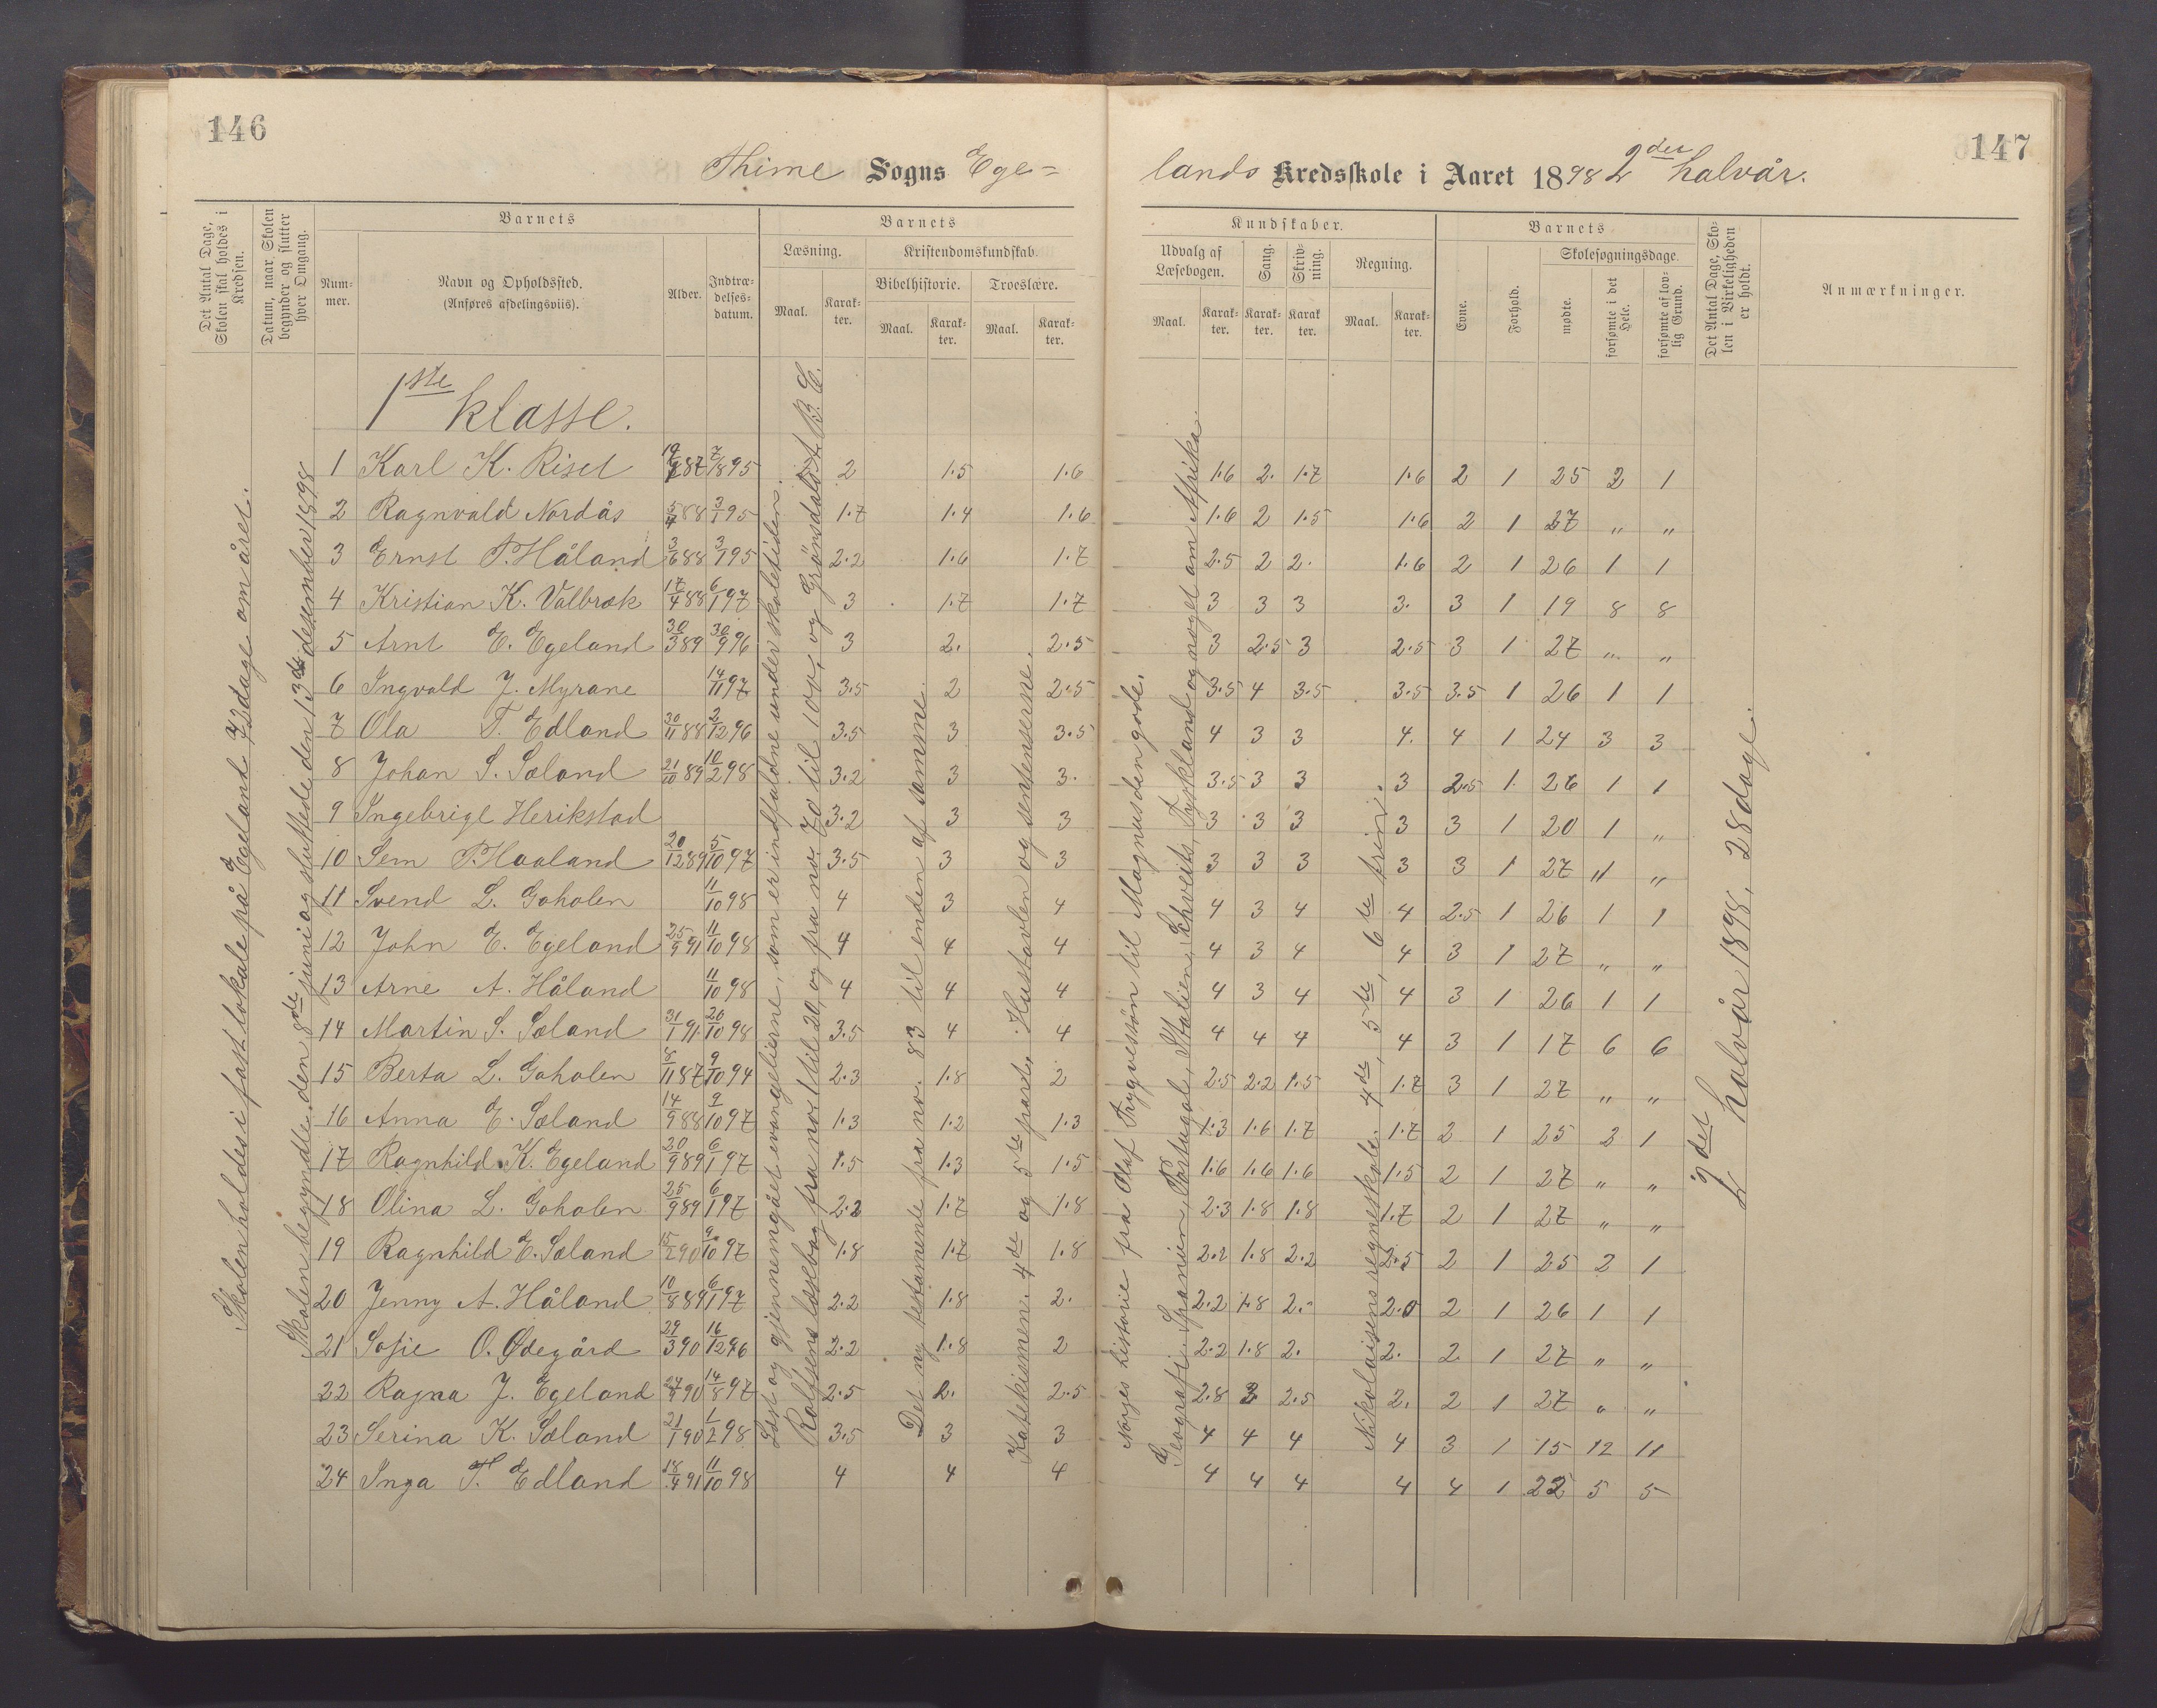 146
Thime Sogns Ege=
Det Antal Dage, Skolen skal holdes i Kredsen.
Datum, naar Skolen begynder og slutter hver Omgang.
Barnets
Num-mer.
Navn og Opholdssted.
(Anføres afdelingsviis).
Alder.
Indtræ-delses-datum.
Barnets
Læsning.
Maal.
Karak-ter.
Kristendomskundskab.
Bibelhistorie.
Maal.
Karak-ter.
Troeslære.
Maal.
Karak-ter.
1ste klasse.
1 Karl K. Riset 19/9 87 7/1 895 2 1.5 1.6
2 Ragnvald Nordås 5/4 88 3/1 95 1.7 1.4 1.6
3 Ernst P. Håland 3/6 88 3/1 95 2.2 1.6 1.7
4 Kristian K. Valbræk 17/4 88 6/1 97 3 1.7 1.7
5 Arnt E. Egeland 30/3 89 30/9 96 3 2. 2.5
6 Ingvald J. Myrane 14/11 97 3.5 2 2.5
7 Ola T. Edland 30/11 88 2/12 96 3.5 3 3.5
8 Johan S. Sæland 21/10 89 10/2 98 3.2 3 3.
9 Ingebrigt Herikstad 3.2 3 3
10 Sem P. Haaland 20/12 89 5/10 97 3.5 3 3
11 Svend L. Goholen 11/10 98 4 3 4
12 John E. Egeland 25/9 91 11/10 98 4 4 4
13 Arne A. Håland 11/10 98 4 4 4
14 Martin S. Sæland 31/1 91 26/10 98 3.5 4 4
15 Berta L. Goholen 18/11 87 9/10 94 2.3 1.8 2
16 Anna E. Sæland 14/9 88 9/10 97 1.3 1.2 1.3
17 Ragnhild K. Egeland 20/9 89 6/1 97 1.5 1.3 1.5
18 Olina L. Goholen 25/9 89 6/1 97 2.2 1.7 1.8
19 Ragnhild E. Sæland 15/2 90 9/10 97 1.8 1.7 1.8
20 Jenny A. Håland 10/8 89 6/1 97 2.2 1.8 2.
21 Sofie O. Ødegård 29/3 90 16/12 96 2.2 1.8 2
22 Ragna J. Egeland 27/4 90 14/8 97 2.5 2. 2.5
23 Serina K. Sæland 21/1 90 1/2 98 3.5 3 3
24 Inga T. Edland 18/4 91 11/10 98 4 4 4
Skolen holdes i fast lokale på Egeland 72 dage om året.
Skolen begyndte den 8de juni og sluttede den 13de desember 1898
Læst og gjennemgået evangelierne, som er indfaldne under skoletiden.
Rolfsens læsebog fra no 1 til 20, og fra no 70 til 100, og Grøndals A. B. C.
Det ny testamente fra no. 83 til enden af samme.
Katekismen: 4de og 5te part, Hustavlen og sentenserne.
147
lands Kredsskole i Aaret 1898 2det halvår.
Kundskaber.
Udvalg af Læsebogen.
Maal.
Karak-ter.
Sang.
Karak-ter.
Skriv-ning.
Karak ter.
Regning.
Maal.
Karak-ter.
Barnets
Evne.
Forhold.
Skolesøgningsdage.
mødte.
forsømte i det Hele.
forsømte af lov-lig Grund.
Det Antal Dage, Sko-len i Virkeligheden er holdt.
Anmærkninger.
1.6 2. 1.7 1.6 2 1 25 2 1
1.6 2 1.5 1.6 2 1 27 " "
2.5 2 2. 1.6 2 1 26 1 1
3 3 3 3. 3 1 19 8 8
3 2.5 3 2.5 3 1 27 " "
3.5 4 3.5 3.5 3.5 1 26 1 1
4 3 3 4. 4 1 24 3 3
3.5 3 3 3 2.5 1. 26 1 1
3 3 3 3 3 1 20 1 "
3 3 3 3 3 1 27 " "
4 3 4 4 2.5 1 26 1 1
4 3 4 4 3 1 27 " "
4 3 4 4 3 1 26 1 1
4 4 4 4 3 1 17 6 6
2.5 2.2 1.5 1.7 3 1 27 " "
1.3 1.6 1.7 1.7 2 1 25 2 1
1.6 1.6 1.6 1.5 2 1 27 " "
2.3 1.8 1.8 1.7 2 1 27 " "
2.2 1.8 2.2 2.5 2 1 25 2 1
2.2 1.8 2. 2.0 2 1 26 1 1
2.2 1.8 2. 2. 2 1 27 " "
2.8 2 2.5 2. 2 1 27 " "
4 4 4 4 3 1 15 12 11
4 4 4 4 4 1 22 5 5
Norges historie fra Olaf Trygvesøn til Magnus den gode.
Geografi: Spanien, Portugal, Italien, Schveits, Tyskland og noget om Afrika.
Nikolaisens regneskole. 4de, 5te, 6te trin.
2det halvår 1898, 28 dage.